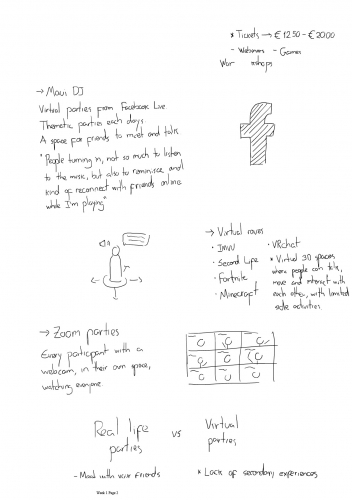 * Tickets → € 12.50 - € 20.00
- Webinars - Games
Wor kshops
→ Maui DJ
Virtual parties from Facebook Live
Thematic parties each days
A space for friends to meet and talk
"People turning in, not so much to listen
to the music, but also to reminisce and
kind of reconnect with friends online
while I'm playing"
→ Virtual raves
· IMVU
· Second Life
· Fortnite
· Minecraft
· VRchat
* Virtual 3D spaces
where people can talk,
move and interact with
each other, with limited
side activities
→ Zoom parties
Every participant with a
webcam, in their own space,
watching everyone
Real life
parties
vs
Virtual
parties
- Mood with your friends
* Lack of secondary experiences
Week 1 Page 2